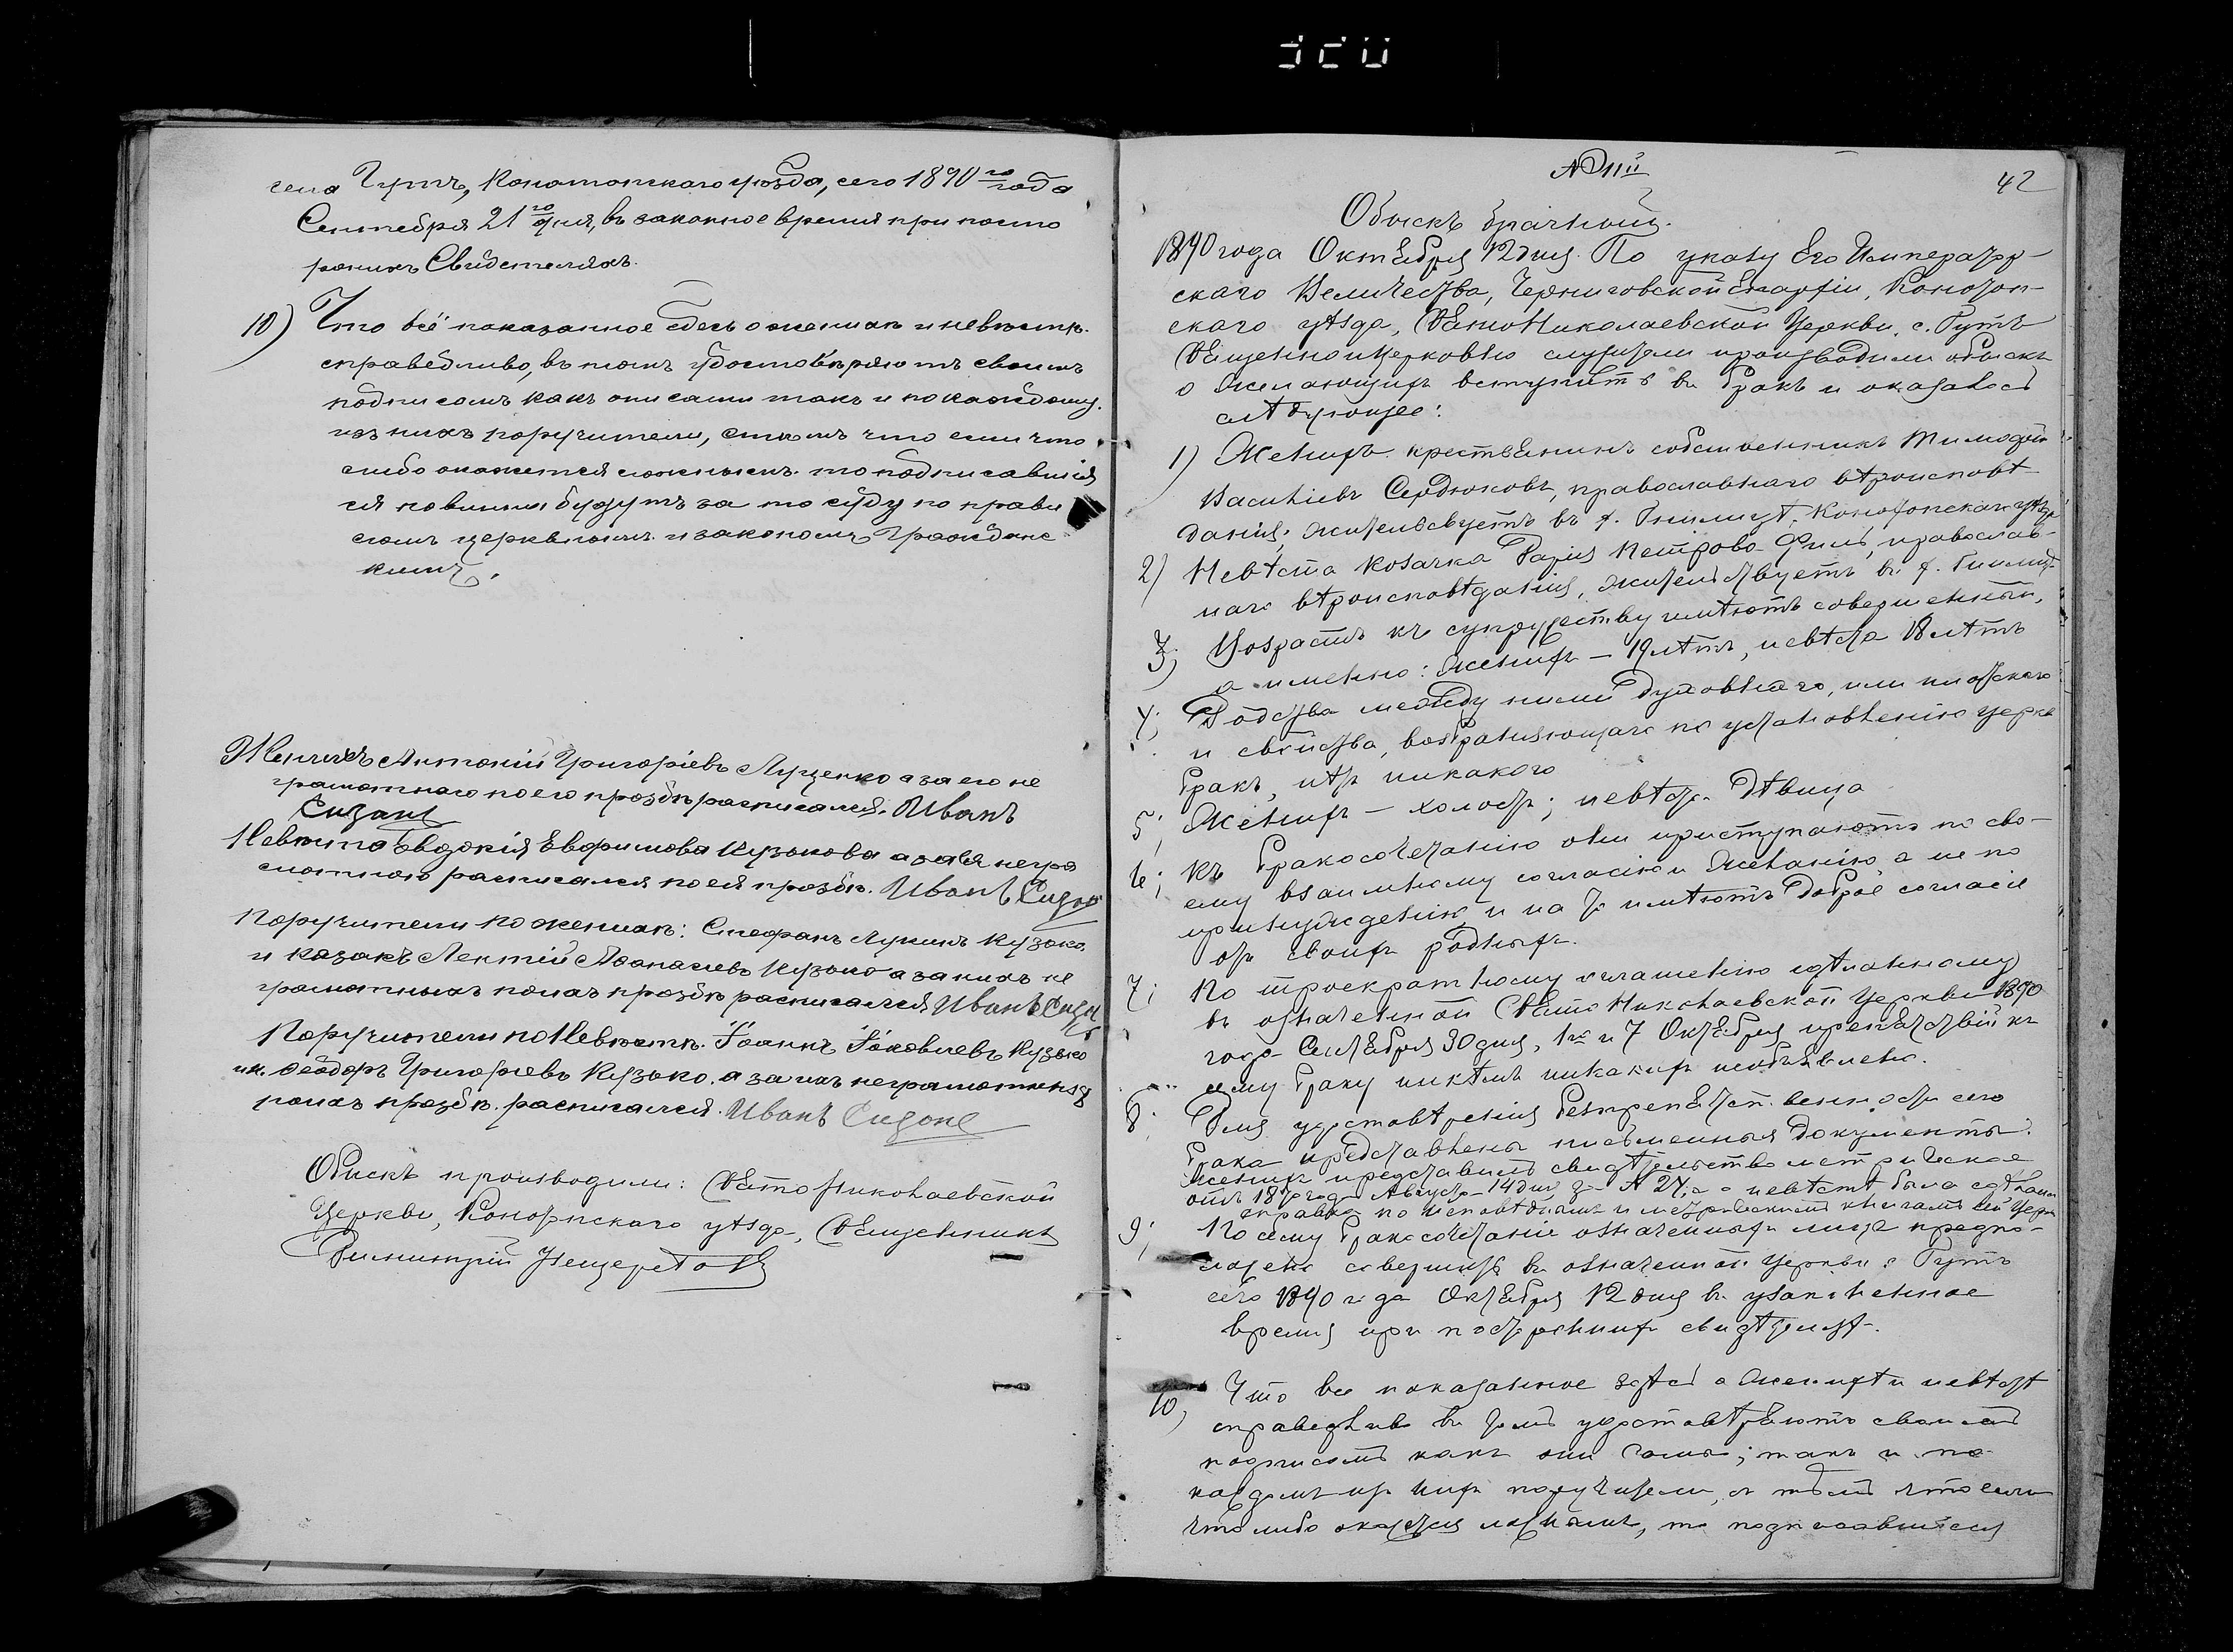 села Гутъ, Конотопскаго уѣзда, сего 1890 го года
Сентября 21 го дня, въ законное время при посто
роннихъ Свидетеляхъ.
10) Что всё показанное здесь о женихѣ и невѣстѣ
справедливо, въ томъ удостовѣряютъ своимъ
подписомъ какъ они сами такъ и по каждому
изъ нихъ поручители, стѣмъ что если что
либо окажется ложнымъ то подписавшія
ся повинни будутъ за то суду по прави
ломъ церквнымъ и закономъ Гражданс
кимъ.
Женихъ Антоній Григоріевъ Луценко а за его не
грамотнаго по его прозбѣ расписался. Иванъ
Сизонъ
Невѣста Евдокія Евфимова Кузькова а за ея негра
мотною расписался по ея прозбѣ. Иванъ Сизонъ
Поручители по женихѣ: Стефанъ Лукинъ Кузько
и казакъ Лектій Афанасіевъ Кузько а за нихъ не
грамотныхъ по ихъ прозбѣ расписался Иванъ Сизо
Поручители по Невѣстѣ. Іоаннъ Іаковлевъ Кузько
и к. Ѳеодоръ Григоріевъ Кузько. а за ихъ неграмотных
по ихъ прозбѣ. расписался. Иванъ Сизонъ
Обискъ производили: Свято Николаевской
Церкви, Конотопскаго уѣзда, Священникъ
Димитрій
№ 11й
42
Обыскъ брачный.
1890 года Октября 12 дня. По указу Его Император-
скаго Величества, Черниговской Епархіи, Конотоп-
скаго уѣзда, Свято Николаевской Церкви с. Гутъ
Священно и церковно служители производили обыскъ
о желающихъ вступить въ бракъ и оказалось
слѣдующее:
1) Женихъ крестьянинъ собственникъ Тимофей
Васильевъ Сердюковъ, православнаго вѣроисповѣ-
данія, жительствуетъ въ д. Гнилицѣ, Конотопскаго уѣзда
2) Невѣста козачка Дарія Петрова, православ-
наго вѣроисповѣданія, жительствуетъ въ д. Гнилицѣ
3; Возрастъ къ супружеству имѣютъ совершенный,
а именно: женихъ — 19 лѣтъ, невѣста 18 лѣтъ
4; Родства между ними духовнаго, или плотскаго
и свойства, возбраняющаго по установленію церкви
бракъ, нѣтъ никакого
5; Женихъ — холостъ; невѣста дѣвица
6; Къ бракосочетанію они приступаютъ по сво-
ему взаимному согласію и желанію а не по
принужденію и на то имѣютъ доброе согласіе
отъ своихъ родныхъ.
7; По троекратному оглашенію сдѣланному
въ означенной Свято Николаевской Церкви 1890
года Сентября 30 дня, 1го и 7 Октября препятствій къ
сему браку никѣмъ никакихъ не объявлено.
8; Для удостовѣренія безпрепятственности сего
брака представлены письменныя документы:
Женихъ представилъ свидѣтельство метрическое
Августа 14 дня за № 27, а о невѣстѣ была сдѣлана
справка по исповѣднымъ и метрическимъ книгамъ сей Церк
9; По сему бракосочетаніе означенныхъ лицъ предпо-
ложено совершить въ означенной церкви с. Гутъ
сего 1890 года Октября 12 дня въ узаконенное
время при постороннихъ свидѣтеляхъ.
10) Что все показанное здѣсь о женихѣ и невѣстѣ
справедливо въ томъ удостовѣряютъ своимъ
подписомъ какъ они сами; такъ и по
каждомъ изъ нихъ поручители, съ тѣмъ что если
что либо окажется ложнымъ, то подписавшіеся